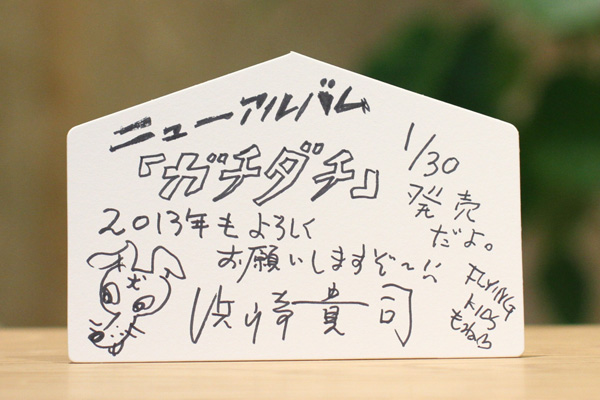 ニューアルバム
『ガチダチ』
1/30
発売
だよ。
2013年もよろしく
お願いしますぞ〜!!
浜崎貴司
FLYING
KIDS